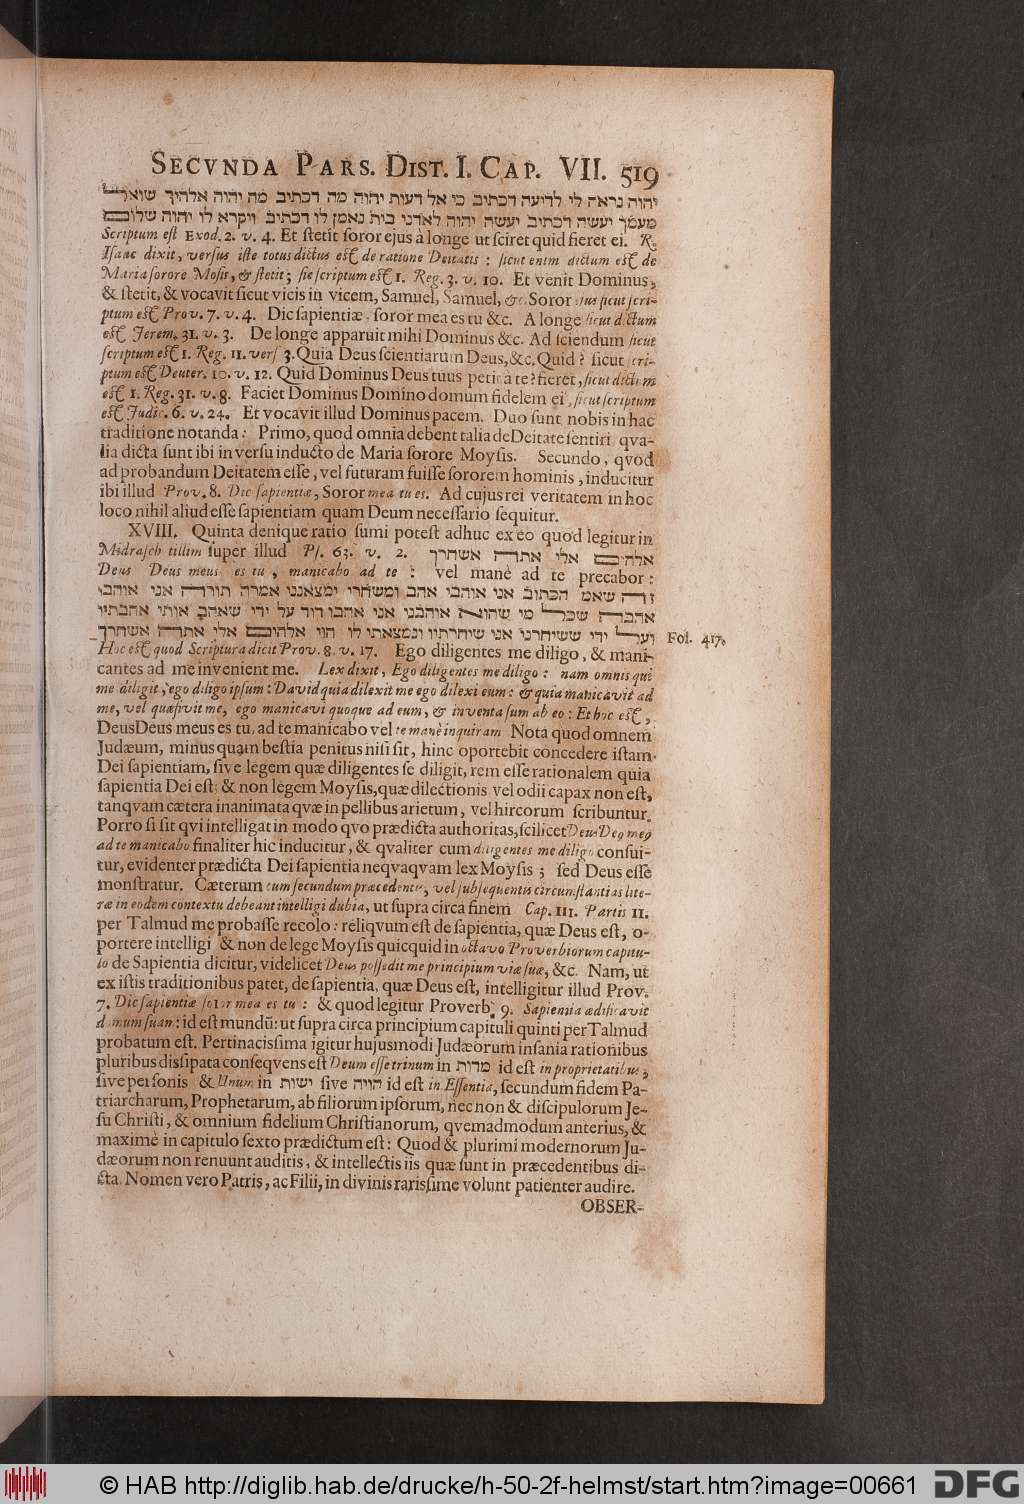 SECVNDA PARS. DIST. I. CAP. VII. 519
יהוה נראה לי לדיעה דכתיב כי אל דעות יהוה מה דכתיב מה יהוה אלהיך שואל
מעמך יעשה דכתיב יעשה יהוה לאדני בית נאמן לו דכתיב ויקרא לו יהוה שלום
Scriptum est Exod. 2. v. 4. Et stetit soror ejus à longe ut sciret quid fieret ei. R.
Isaac dixit, versus iste totus dictus est de ratione Deitatis: sicut enim dictum est de
Maria sorore Mosis, & stetit; sic scriptum est 1. Reg. 3. v. 10. Et venit Dominus,
& stetit, & vocavit sicut vicis in vicem, Samuel, Samuel, &c. Soror ejus sicut scri-
ptum est Prov. 7. v. 4. Dic sapientiæ, soror mea es tu &c. A longe sicut dictum
est Jerem. 31. v. 3. De longe apparuit mihi Dominus &c. Ad sciendum sicut
scriptum est 1. Reg. 11. vers 3. Quia Deus scientiarum Deus, &c. Quid? sicut scri-
ptum est Deuter. 10. v. 12. Quid Dominus Deus tuus petit à te? fieret, sicut dictum
est 1. Reg. 31. v. 8. Faciet Dominus Domino domum fidelem ei, sicut scriptum
est Judic. 6. v. 24. Et vocavit illud Dominus pacem. Duo sunt nobis in hac
traditione notanda: Primo, quod omnia debent talia de Deitate sentiri qva-
lia dicta sunt ibi in versu inducto de Maria sorore Moysis. Secundo, qvod
ad probandum Deitatem esse, vel futuram fuisse sororem hominis, inducitur
ibi illud Prov. 8. Dic sapientiæ, Soror mea tu es. Ad cujus rei veritatem in hoc
loco nihil aliud esse sapientiam quam Deum necessario sequitur.
XVIII. Quinta denique ratio sumi potest adhuc ex eo quod legitur in
Midrasch tillim super illud Ps. 63. v. 2. אלהים אלי אתה אשחרך
Deus Deus meus es tu, manicabo ad te: vel manè ad te precabor:
זה שאמ הכתוב אני אוהבי אהב ומשחרי ימצאנני אמרה תורה אני אוהבו
אהבה שכל מי שהוא אוהבני אני אהבו דוד על ידי שאהב אותי אהבתיו
ועל ידי ששיחרני אני שיחרתיו ונמצאתי לו הוי אלהים אלי אתה אשחרך
Fol. 417.
Hoc est quod Scriptura dicit Prov. 8. v. 17. Ego diligentes me diligo, & mani-
cantes ad me invenient me. Lex dixit, Ego diligentes me diligo: nam omnis qui
me diligit, ego diligo ipsum: David quia dilexit me ego dilexi eum: & quia manicavit ad
me, vel quæsivit me, ego manicavi quoque ad eum, & inventa sum ab eo: Et hoc est,
Deus Deus meus es tu, ad te manicabo vel te manè inquiram Nota quod omnem
Judæum, minus quam bestia penitus nisi sit, hinc oportebit concedere istam
Dei sapientiam, sive legem quæ diligentes se diligit, rem esse rationalem quia
sapientia Dei est: & non legem Moysis, quæ dilectionis vel odii capax non est,
tanqvam cætera inanimata qvæ in pellibus arietum, vel hircorum scribuntur.
Porro si sit qvi intelligat in modo qvo prædicta authoritas, scilicet Deus Deus meus
ad te manicabo finaliter hic inducitur, & qvaliter cum diligentes me diligo consui-
tur, evidenter prædicta Dei sapientia neqvaqvam lex Moysis; sed Deus esse
monstratur. Cæterum cum secundum præcedentes, vel subsequentis circumstantias lite-
ræ in eodem contextu debeant intelligi dubia, ut supra circa finem Cap. III. Partis II.
per Talmud me probasse recolo: reliqvum est de sapientia, quæ Deus est, o-
portere intelligi & non de lege Moysis quicquid in octavo Proverbiorum capitu-
lo de Sapientia dicitur, videlicet Deus possedit me principium viæ suæ, &c. Nam, ut
ex istis traditionibus patet, de sapientia, quæ Deus est, intelligitur illud Prov.
7. Dic sapientiæ soror mea es tu: & quod legitur Proverb. 9. Sapientia ædificavit
domum suam: id est mundū: ut supra circa principium capituli quinti per Talmud
probatum est. Pertinacissima igitur hujusmodi Judæorum insania rationibus
pluribus dissipata conseqvens est Deum esse trinum in מדות id est in proprietatibus,
sive personis & Unum in ישות sive הויה id est in Essentia, secundum fidem Pa-
triarcharum, Prophetarum, ab filiorum ipsorum, nec non & discipulorum Je-
su Christi, & omnium fidelium Christianorum, qvemadmodum anterius, &
maximè in capitulo sexto prædictum est: Quod & plurimi modernorum Ju-
dæorum non renuunt auditis, & intellectis iis quæ sunt in præcedentibus di-
cta. Nomen vero Patris, ac Filii, in divinis rarissime volunt patienter audire.
OBSER-
© HAB http://diglib.hab.de/drucke/h-50-2f-helmst/start.htm?image=00661
DFG